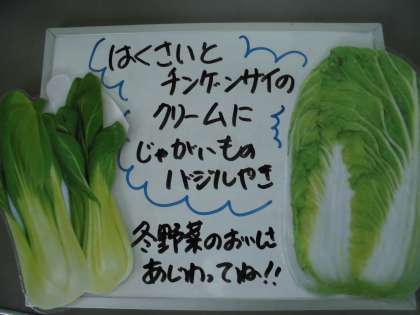 はくさいと
チンゲンサイの
クリームに
じゃがいもの
バジルやき
冬野菜のおいしさ
あじわってね!!